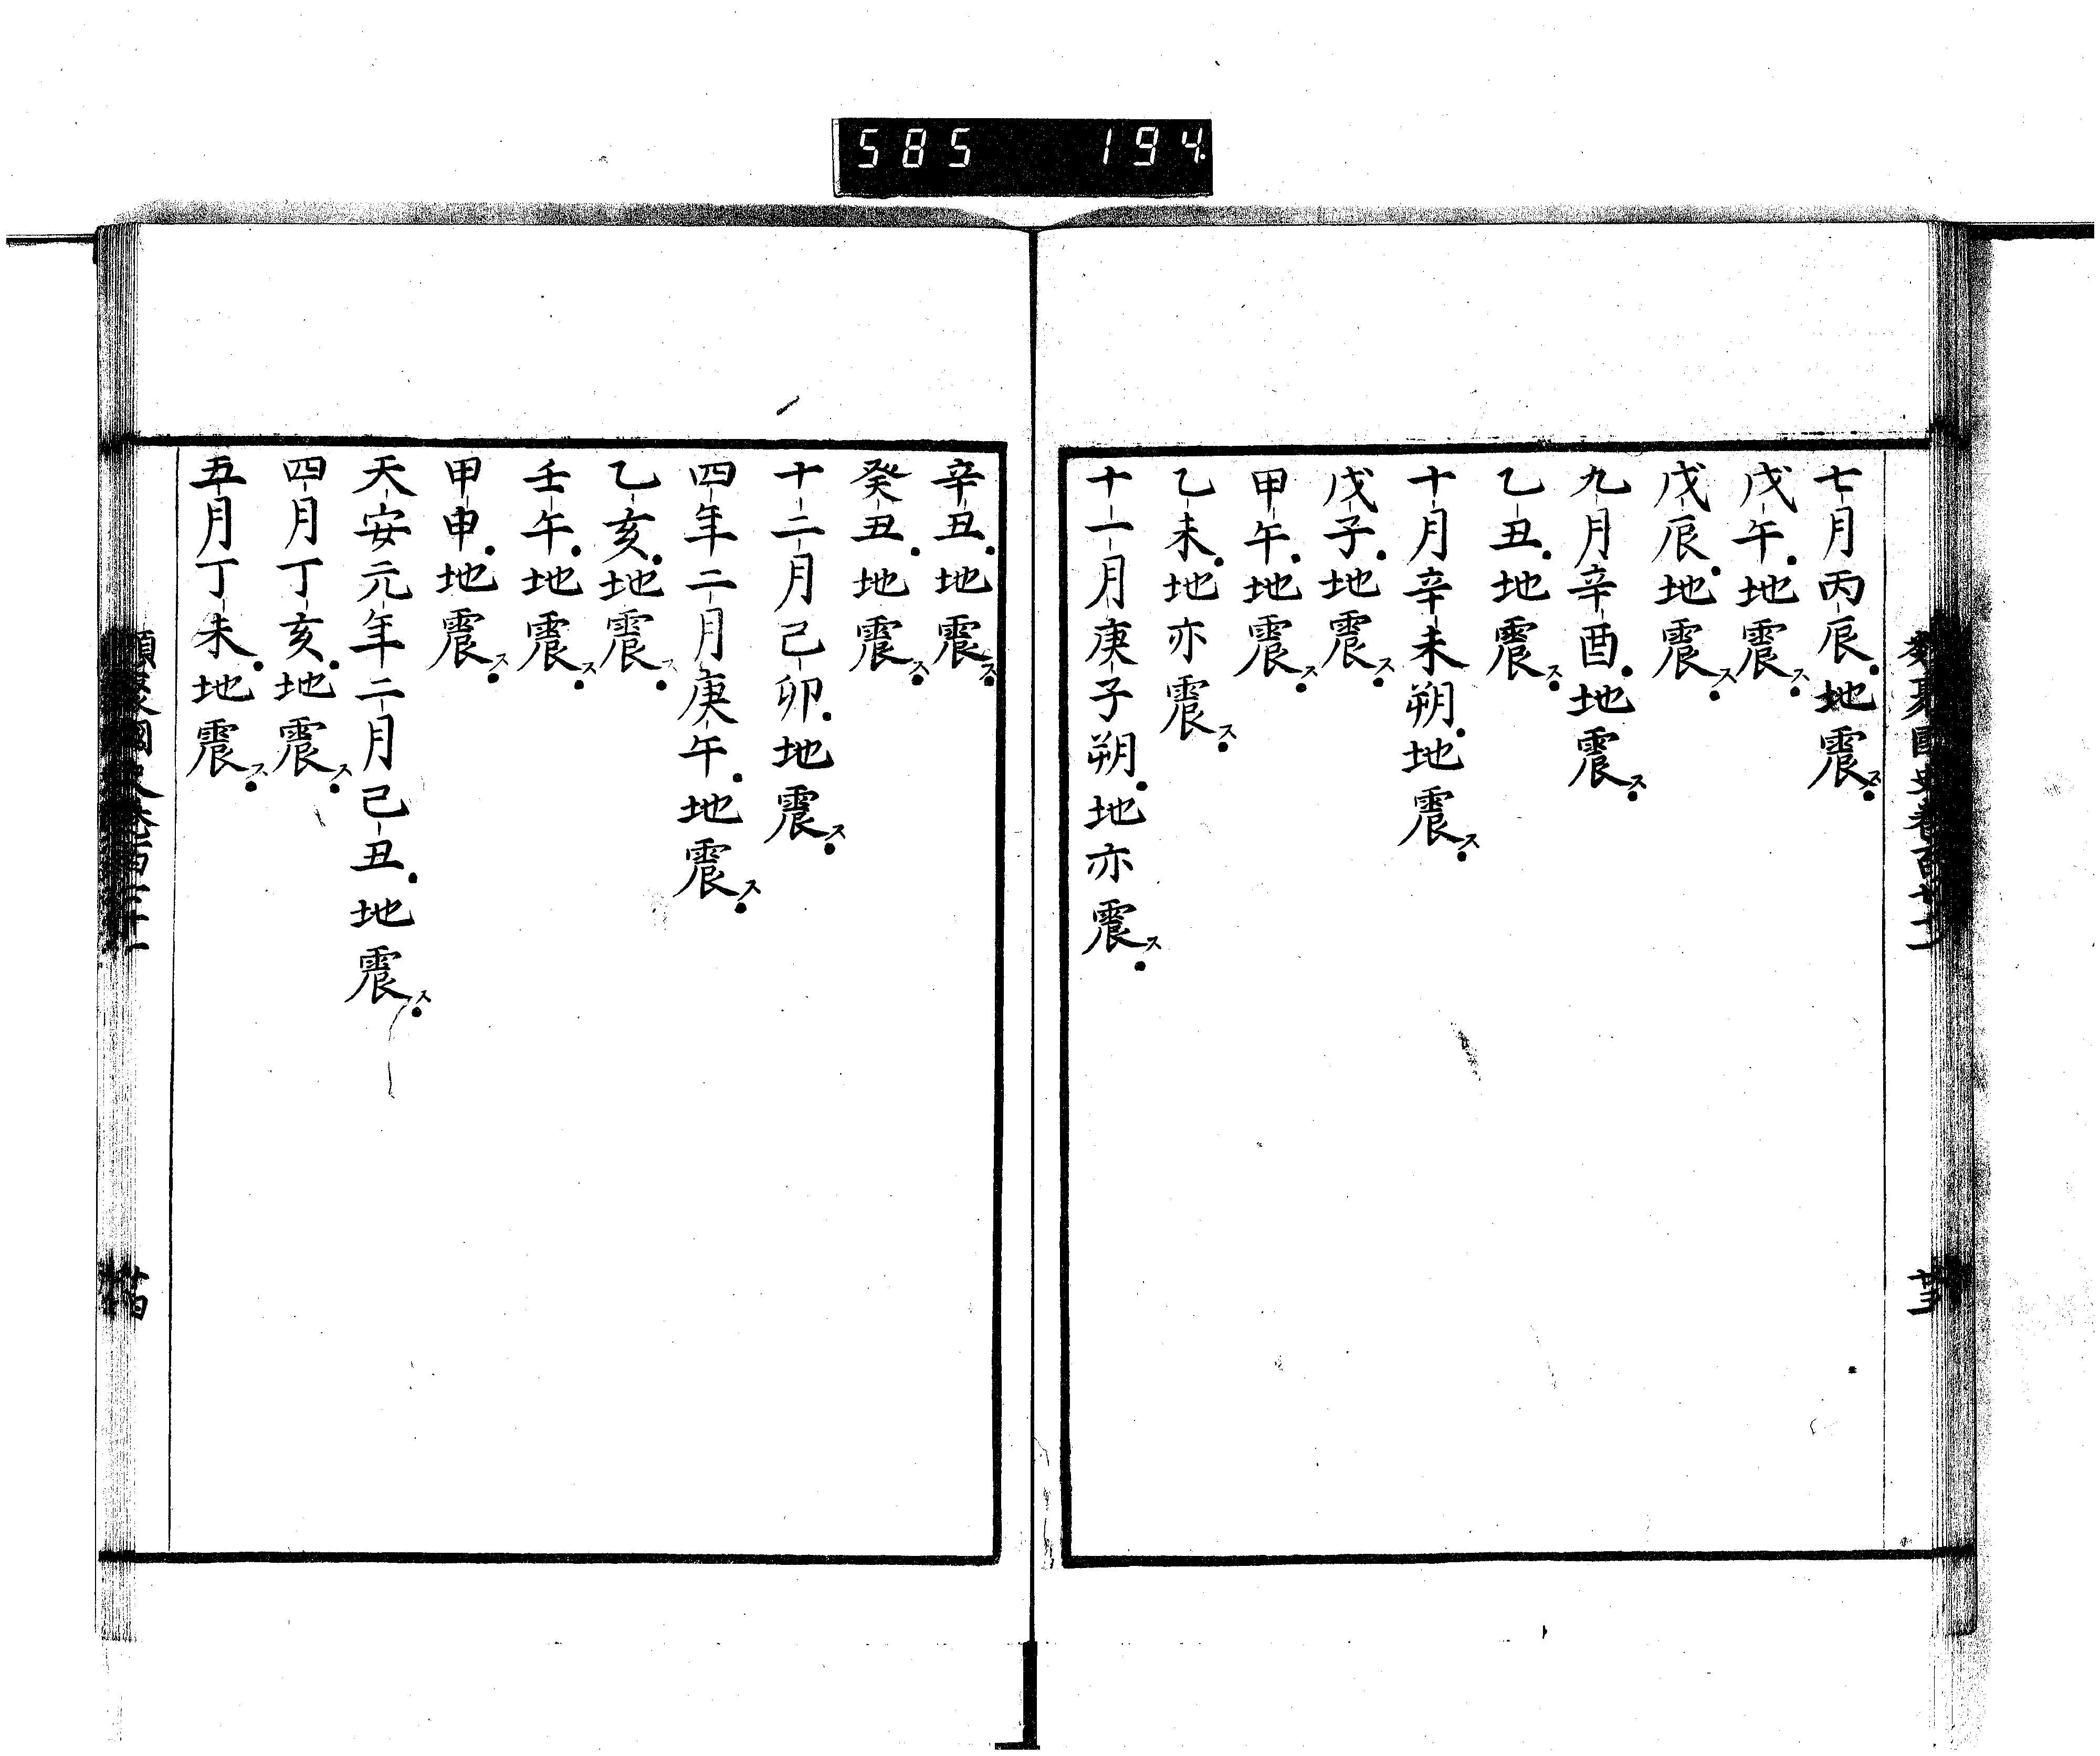 585 194
七月丙辰地震ス
戊午地震ス
戊辰地震ス
九月辛酉地震ス
乙丑地震ス
十月辛未朔地震ス
戊子地震ス
甲午地震ス
乙未地亦震ス
十一月庚子朔地亦震ス
辛丑地震ス
癸丑地震ス
十二月己卯地震ス
四年二月庚午地震ス
乙亥地震ス
壬午地震ス
甲申地震ス
天安元年二月己丑地震ス
四月丁亥地震ス
五月丁未地震ス